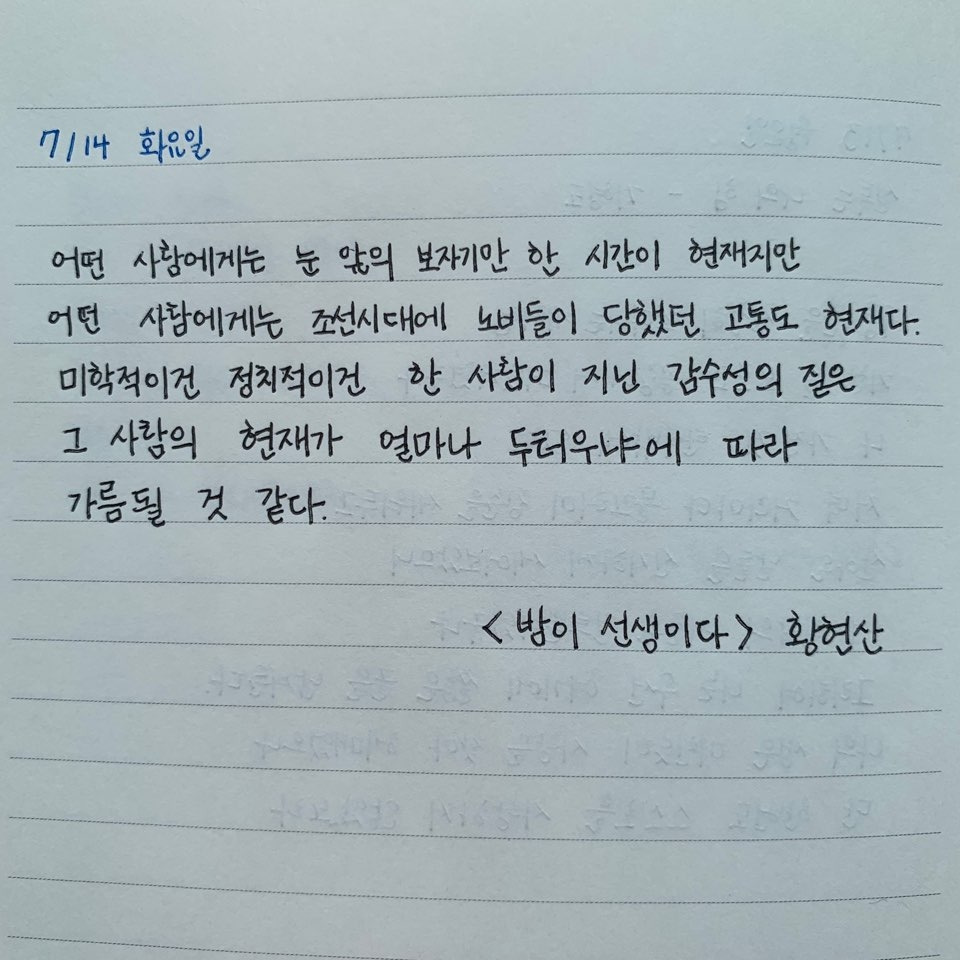 7/14 화요일
어떤 사람에게는 눈 앞의 보자기만 한 시간이 현재지만
어떤 사람에게는 조선시대에 노비들이 당했던 고통도 현재다.
미학적이건 정치적이건 한 사람이 지닌 감수성의 질은
그 사람의 현재가 얼마나 두터우냐에 따라
가름될 것 같다.
<밤이 선생이다> 황현산